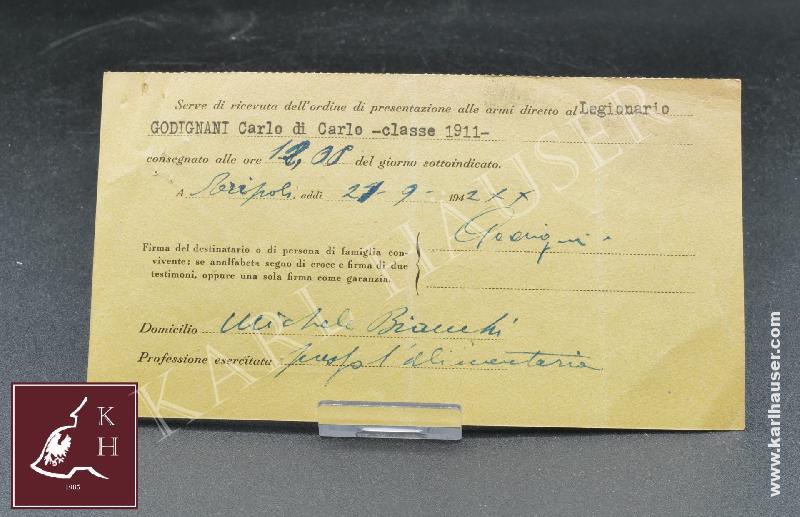 Serve di ricevuta dell'ordine di presentazione alle armi diretto al Legionario
GODIGNANI Carlo di Carlo -classe 1911-
consegnato alle ore 12,00 del giorno sottoindicato.
A Tripoli, addì 21-9- 1942 XX
Firma del destinatario o di persona di famiglia con-
vivente; se analfabeta segno di croce e firma di due
testimoni, oppure una sola firma come garanzia.
Domicilio Michele Bianchi
Professione esercitata l'alimentaria
K
H
1985
KARL HAUSER
www.karlhauser.com